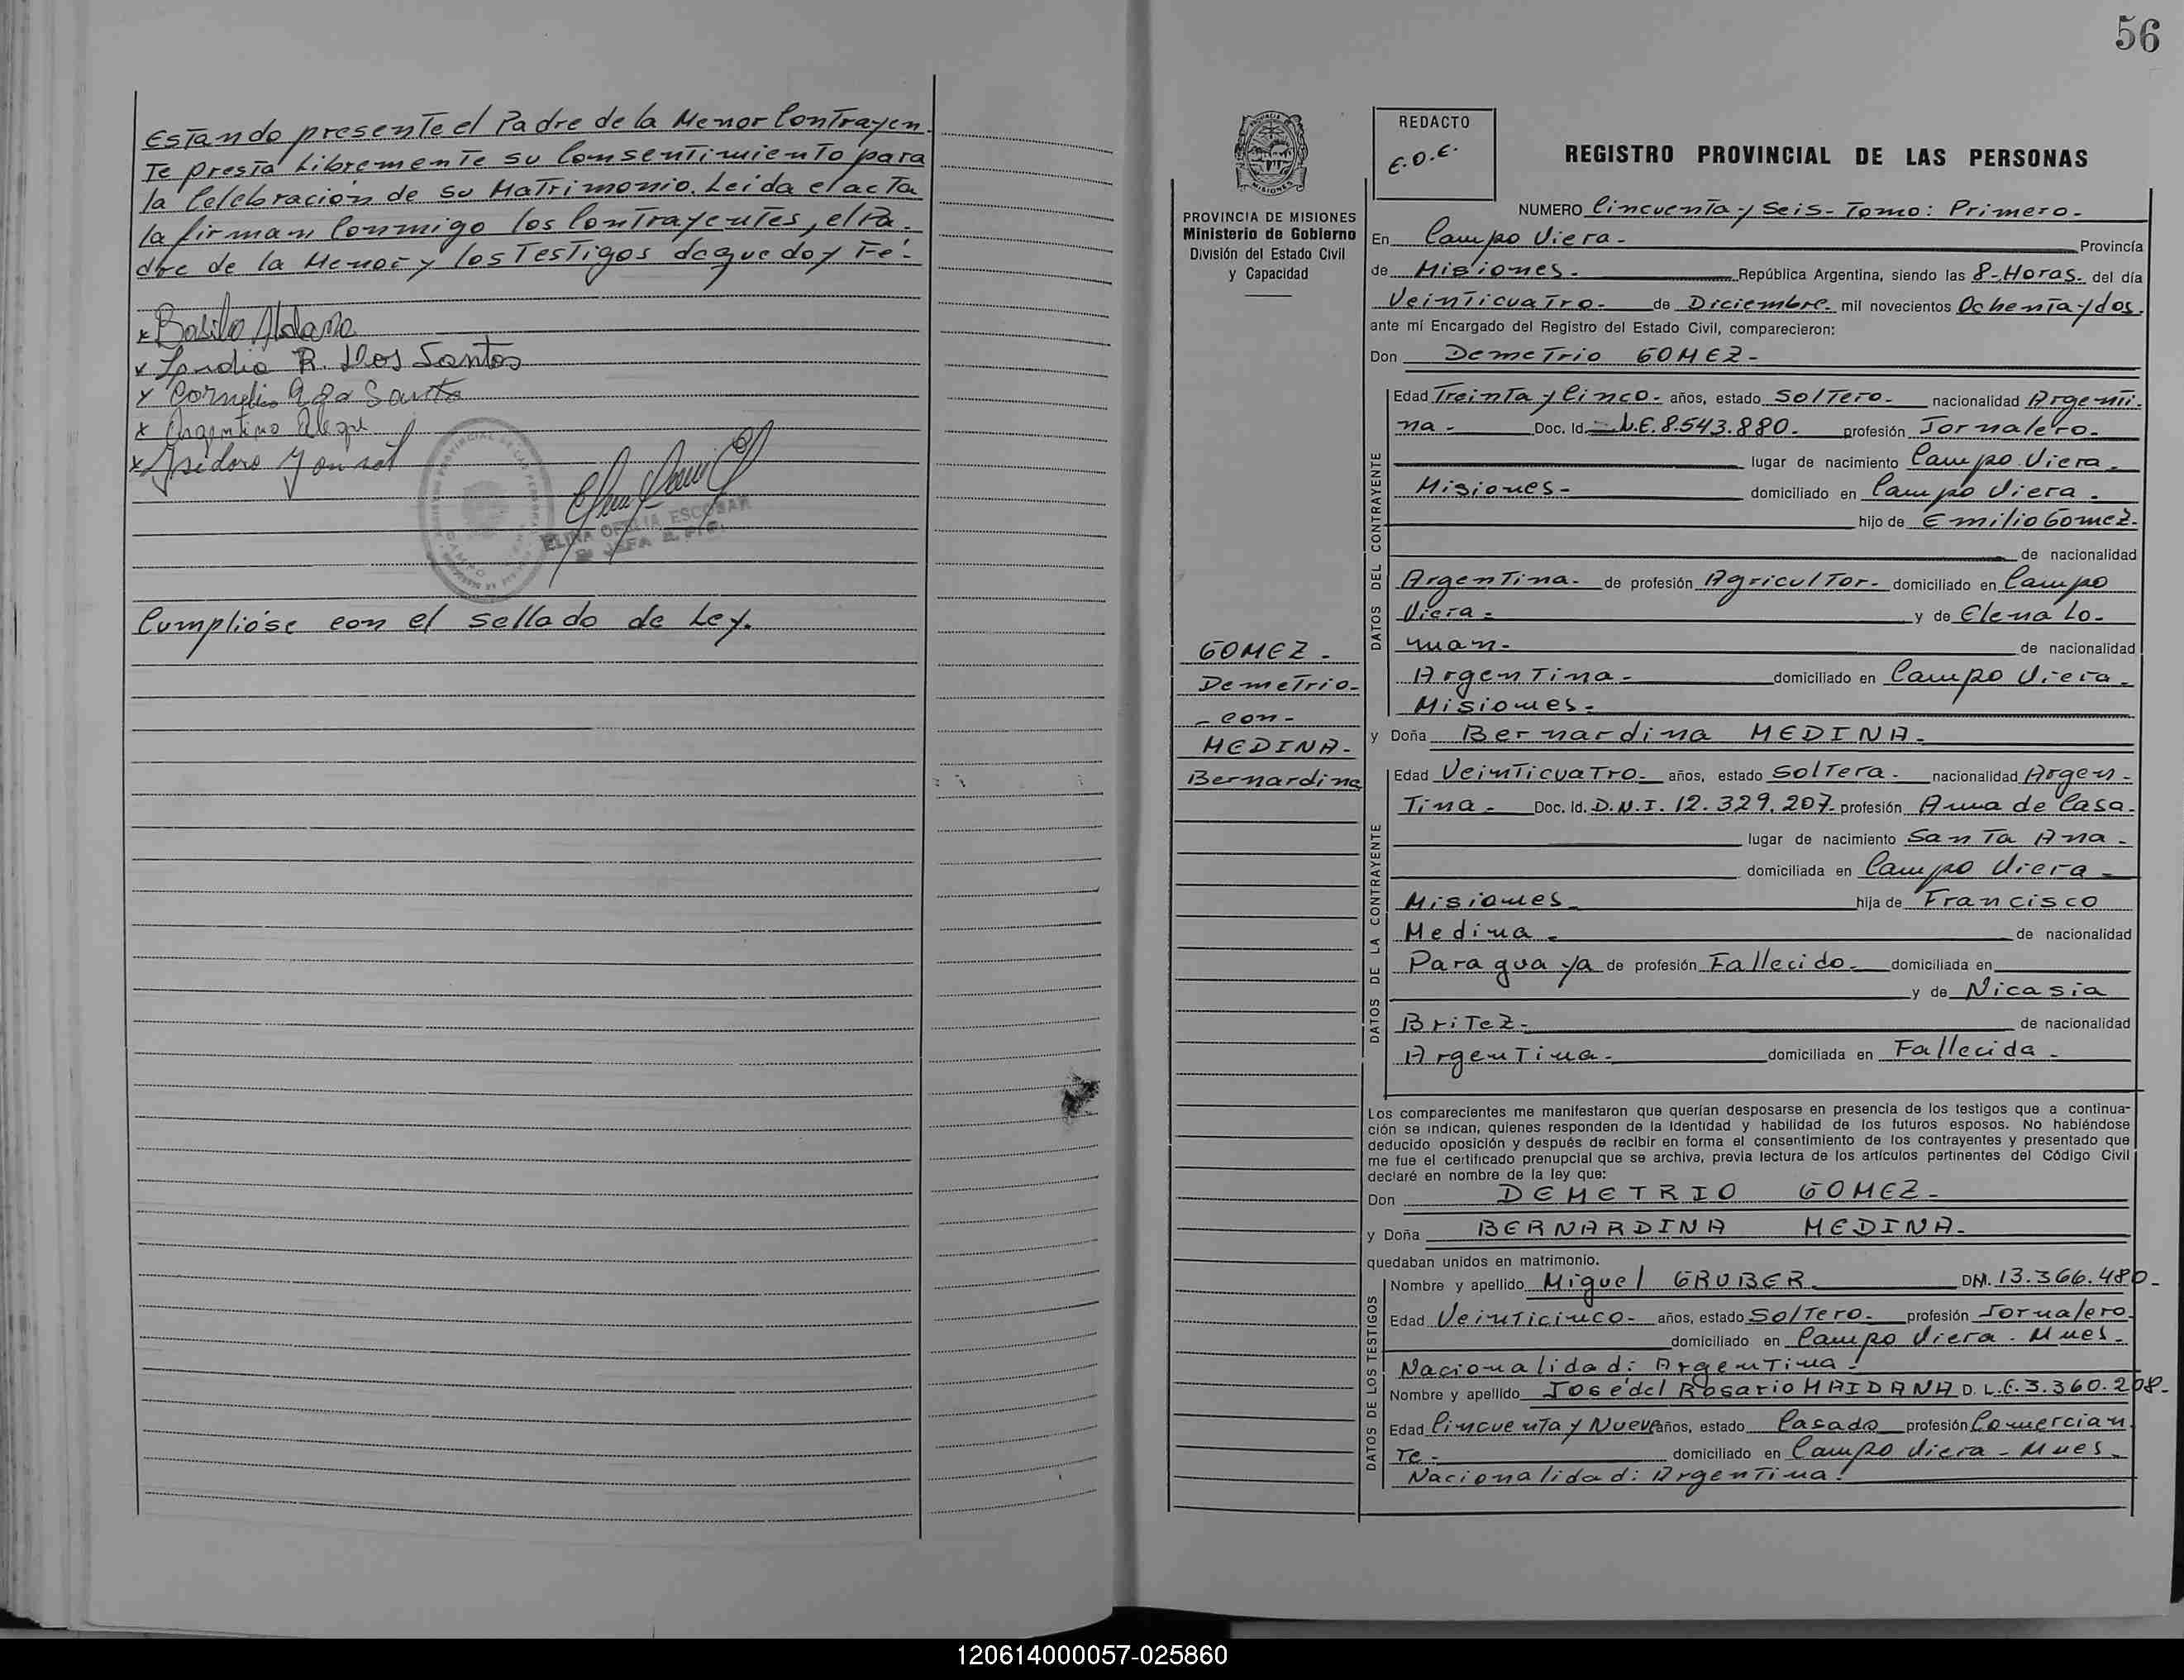 Estando presente el Padre de la Menor Contrayen-
te presta Libremente su Consentimiento para
la Celebración de su Matrimonio. Leida el acta
la firman Conmigo los Contrayentes, el Pa-
dre de la Menor y los Testigos de que doy Fé.-
x Basilio Aldana
x R. Dos Santos
x Cornelio Dos Santos
x Argentino Alegre
x Isidoro
ELINA OFELIA ESCOBAR
JEFA
Cumplióse con el sellado de Ley.
56
REDACTO
E.O.E.
REGISTRO PROVINCIAL DE LAS PERSONAS
PROVINCIA DE MISIONES
Ministerio de Gobierno
División del Estado Civil
y Capacidad
GOMEZ -
Demetrio-
- con -
MEDINA-
Bernardina
NUMERO Cincuenta y Seis- Tomo: Primero-
En Campo Viera- Provincia
de Misiones- República Argentina, siendo las 8-Horas- del día
Veinticuatro- de Diciembre- mil novecientos Ochenta y dos.
ante mí Encargado del Registro del Estado Civil, comparecieron:
Don Demetrio GOMEZ-
DATOS DEL CONTRAYENTE
Edad Treinta y Cinco- años, estado Soltero- nacionalidad Argenti-
na- Doc. Id. L.E. 8.543.880- profesión Jornalero-
lugar de nacimiento Campo Viera-
Misiones- domiciliado en Campo Viera-
hijo de Emilio Gomez-
de nacionalidad
Argentina- de profesión Agricultor- domiciliado en Campo
Viera- y de Elena Lo-
man- de nacionalidad
Argentina- domiciliado en Campo Viera-
Misiones-
y Doña Bernardina MEDINA-
DATOS DE LA CONTRAYENTE
Edad Veinticuatro- años, estado Soltera- nacionalidad Argen-
tina- Doc. Id. D.N.I. 12.329.207- profesión Ama de Casa-
lugar de nacimiento Santa Ana-
domiciliada en Campo Viera-
Misiones- hija de Francisco
Medina- de nacionalidad
Paraguaya de profesión Fallecido- domiciliada en
y de Nicasia
Britez- de nacionalidad
Argentina- domiciliada en Fallecida-
Los comparecientes me manifestaron que querían desposarse en presencia de los testigos que a continua-
ción se indican, quienes responden de la identidad y habilidad de los futuros esposos. No habiéndose
deducido oposición y después de recibir en forma el consentimiento de los contrayentes y presentado que
me fue el certificado prenupcial que se archiva, previa lectura de los artículos pertinentes del Código Civil
declaré en nombre de la ley que:
Don DEMETRIO GOMEZ-
y Doña BERNARDINA MEDINA-
quedaban unidos en matrimonio.
DATOS DE LOS TESTIGOS
Nombre y apellido Miguel GRUBER DNI. 13.366.480-
Edad Veinticinco- años, estado Soltero- profesión Jornalero
domiciliado en Campo Viera- Mnes-
Nacionalidad: Argentina-
Nombre y apellido José del Rosario MAIDANA D. L.E. 3.360.208-
Edad Cincuenta y Nueve años, estado Casado profesión Comercian
te- domiciliado en Campo Viera- Mnes-
Nacionalidad: Argentina-
120614000057-025860